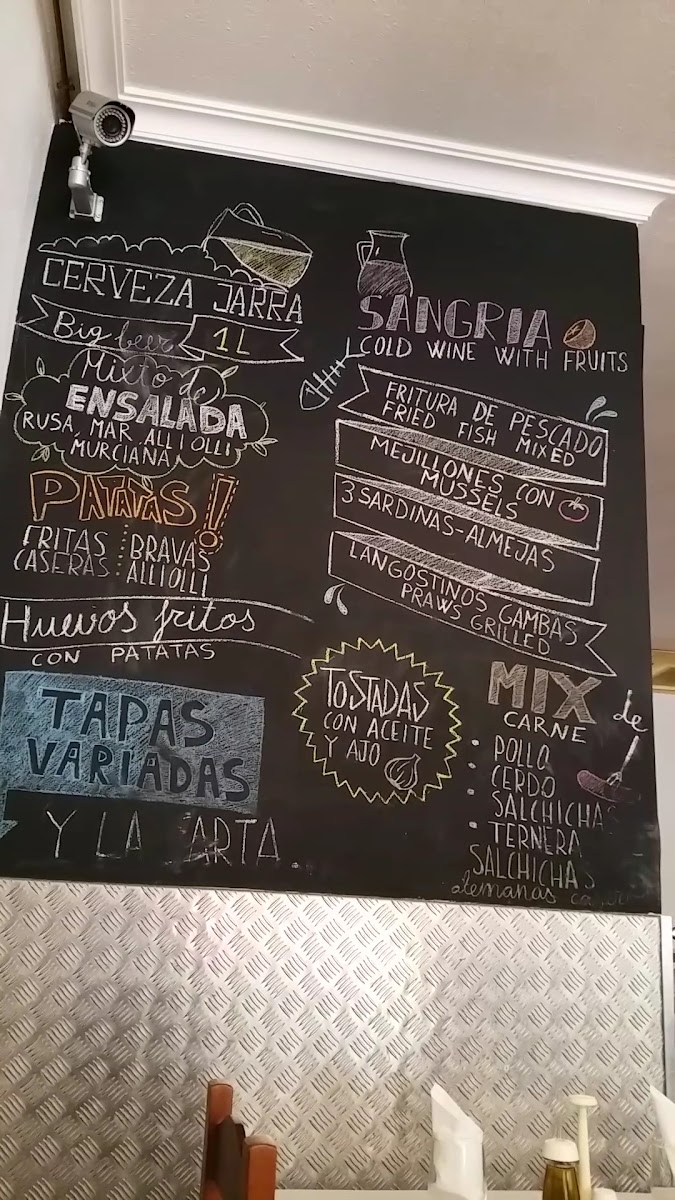 CERVEZA JARRA
Big beer 1L
Mixto de
ENSALADA
RUSA, MAR, ALLIOLLI
MURCIANA
PATATAS!
FRITAS BRAVAS
CASERAS ALLIOLLI
Huevos fritos
CON PATATAS
TAPAS
VARIADAS
Y LA ARTA
SANGRIA
COLD WINE WITH FRUITS
FRITURA DE PESCADO
FRIED FISH MIXED
MEJILLONES CON
MUSSELS
3 SARDINAS-ALMEJAS
LANGOSTINOS GAMBAS
PRAWS GRILLED
TOSTADAS
CON ACEITE
Y AJO
MIX de
CARNE
• POLLO
• CERDO
• SALCHICHAS
• TERNERA
SALCHICHAS
alemanas